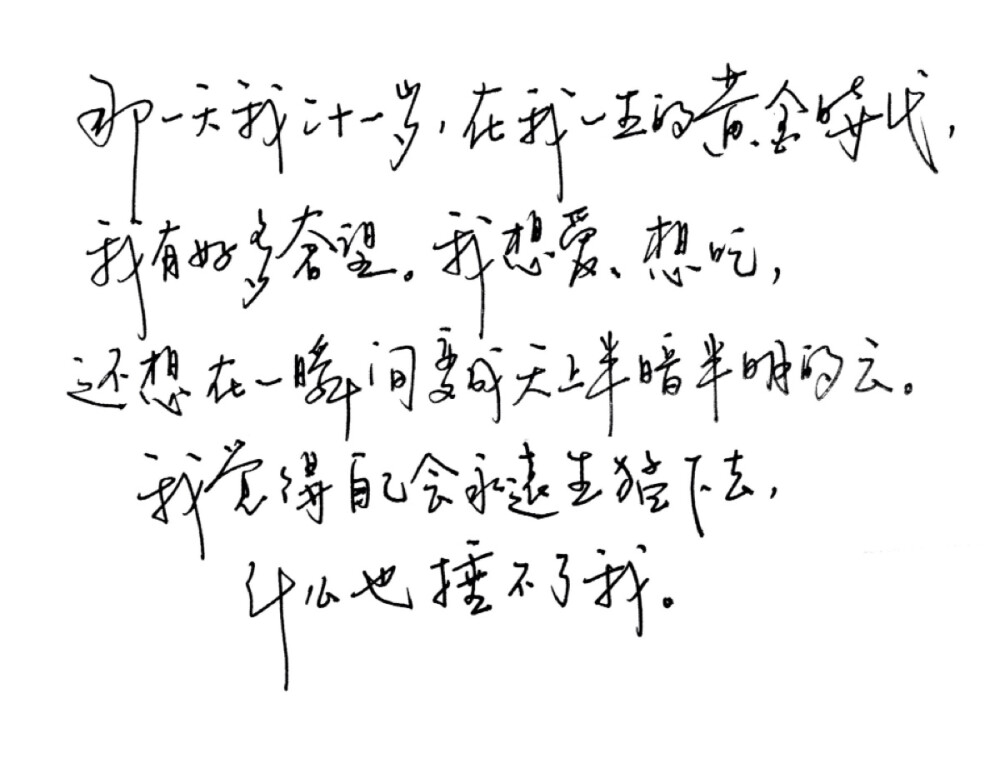 那一天我二十一岁，在我一生的黄金时代，
我有好多奢望。我想爱、想吃，
还想在一瞬间变成天上半暗半明的云。
我觉得自己会永远生猛下去，
什么也捶不了我。